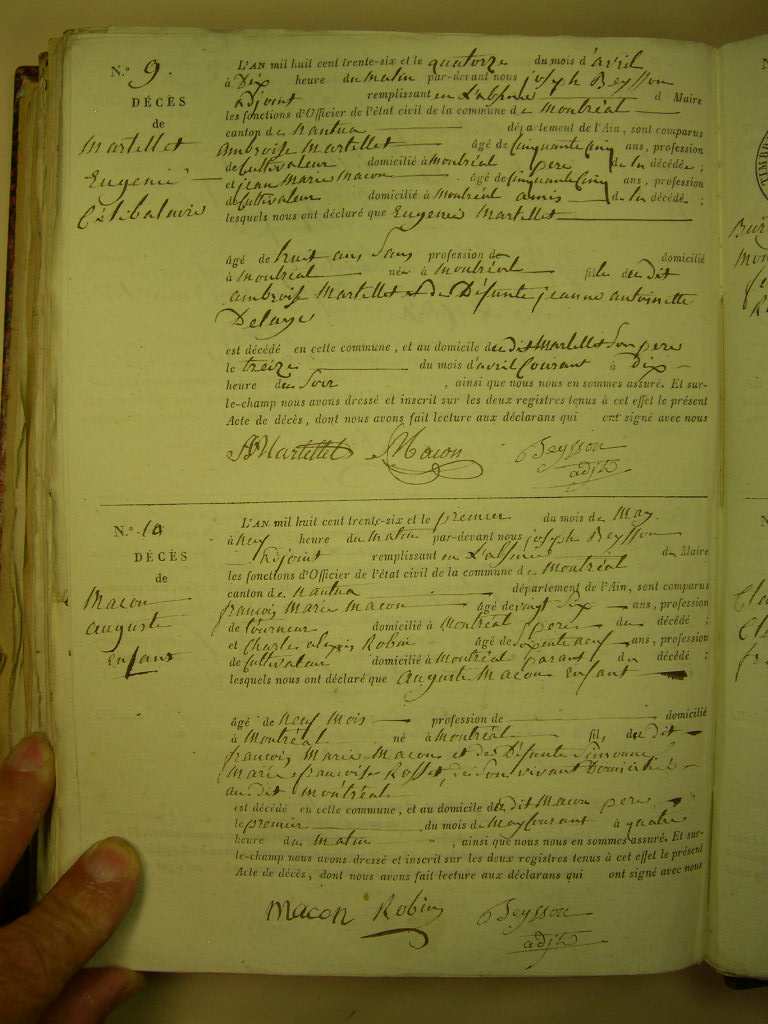 N.º 9.
DÉCÈS
de
Martellet
Eugenie
Célibatairre
L'AN mil huit cent trente-six et le quatorze du mois d'avril
à Dix heure du matin par-devant nous joseph Beysson
Adjoint remplissant en L'absence d Maire
les fonctions d'Officier de l'état civil de la commune de Montréal
canton de Nantua département de l'Ain, sont comparus
Ambroise Martellet âgé de Cinquante Cinq ans, profession
de Cultivateur domicilié à Montréal pere de la décédée ;
et jean Marie Macon âgé de Cinquante Cinq ans, profession
de Cultivateur domicilié à Montréal amis de la décédée ;
lesquels nous ont déclaré que Eugenie Martellet
âgé de huit ans Sans profession de domicilié
à Montréal née à Montréal fille du dit
Ambroise Martellet et de Défunte jeanne antoinette
Delaye
est décédé en cette commune, et au domicile du dit Martellet Son pere
le treize du mois d'avril Courant à Dix
heure du Soir , ainsi que nous nous en sommes assuré. Et sur-
le-champ nous avons dressé et inscrit sur les deux registres tenus à cet effet le présent
Acte de décès, dont nous avons fait lecture aux déclarans qui ont signé avec nous
Martellet Macon Beysson
adjt
N.º 10
DÉCÈS
de
Macon
auguste
enfant
L'AN mil huit cent trente-six et le premier du mois de May
à neuf heure du Matin par-devant nous joseph Beysson
Adjoint remplissant en L'absence du Maire
les fonctions d'Officier de l'état civil de la commune de Montréal
canton de Nantua département de l'Ain, sont comparus
françois Marie Macon âgé de vingt Six ans, profession
de tourneur domicilié à Montréal pere du décédé ;
et Charles alexis Robin âgé de soixante neuf ans, profession
de Cultivateur domicilié à Montréal parant du décédé ;
lesquels nous ont déclaré que Auguste Macon enfant
âgé de neuf Mois profession de domicilié
à Montréal né à Montréal fils du dit
françois Marie Macon et de Défunte
Marie françoise Rosset, de Son vivant Domiciliée
au dit Montréal
est décédé en cette commune, et au domicile du dit Macon pere
le premier du mois de May Courant à quatre
heure du Matin , ainsi que nous nous en sommes assuré. Et sur-
le-champ nous avons dressé et inscrit sur les deux registres tenus à cet effet le présent
Acte de décès, dont nous avons fait lecture aux déclarans qui ont signé avec nous
Macon Robin Beysson
adjt